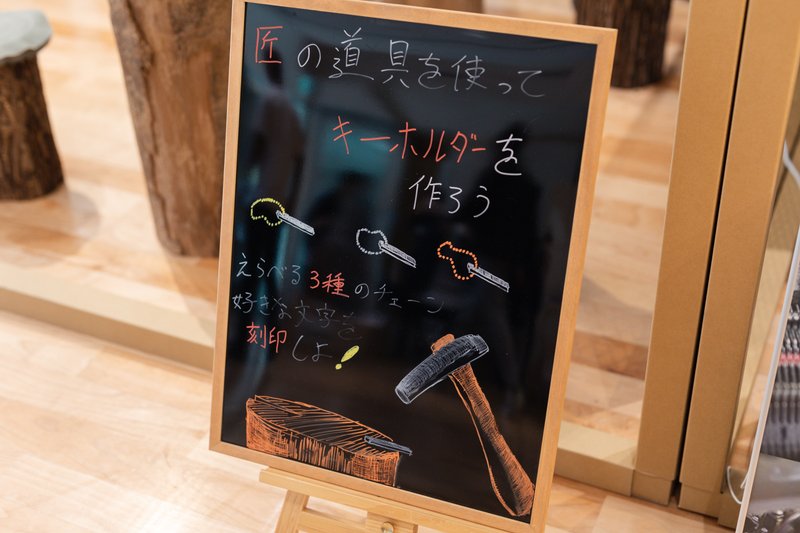 匠の道具を使って
キーホルダーを
作ろう
えらべる3種のチェーン
好きな文字を
刻印しよ!